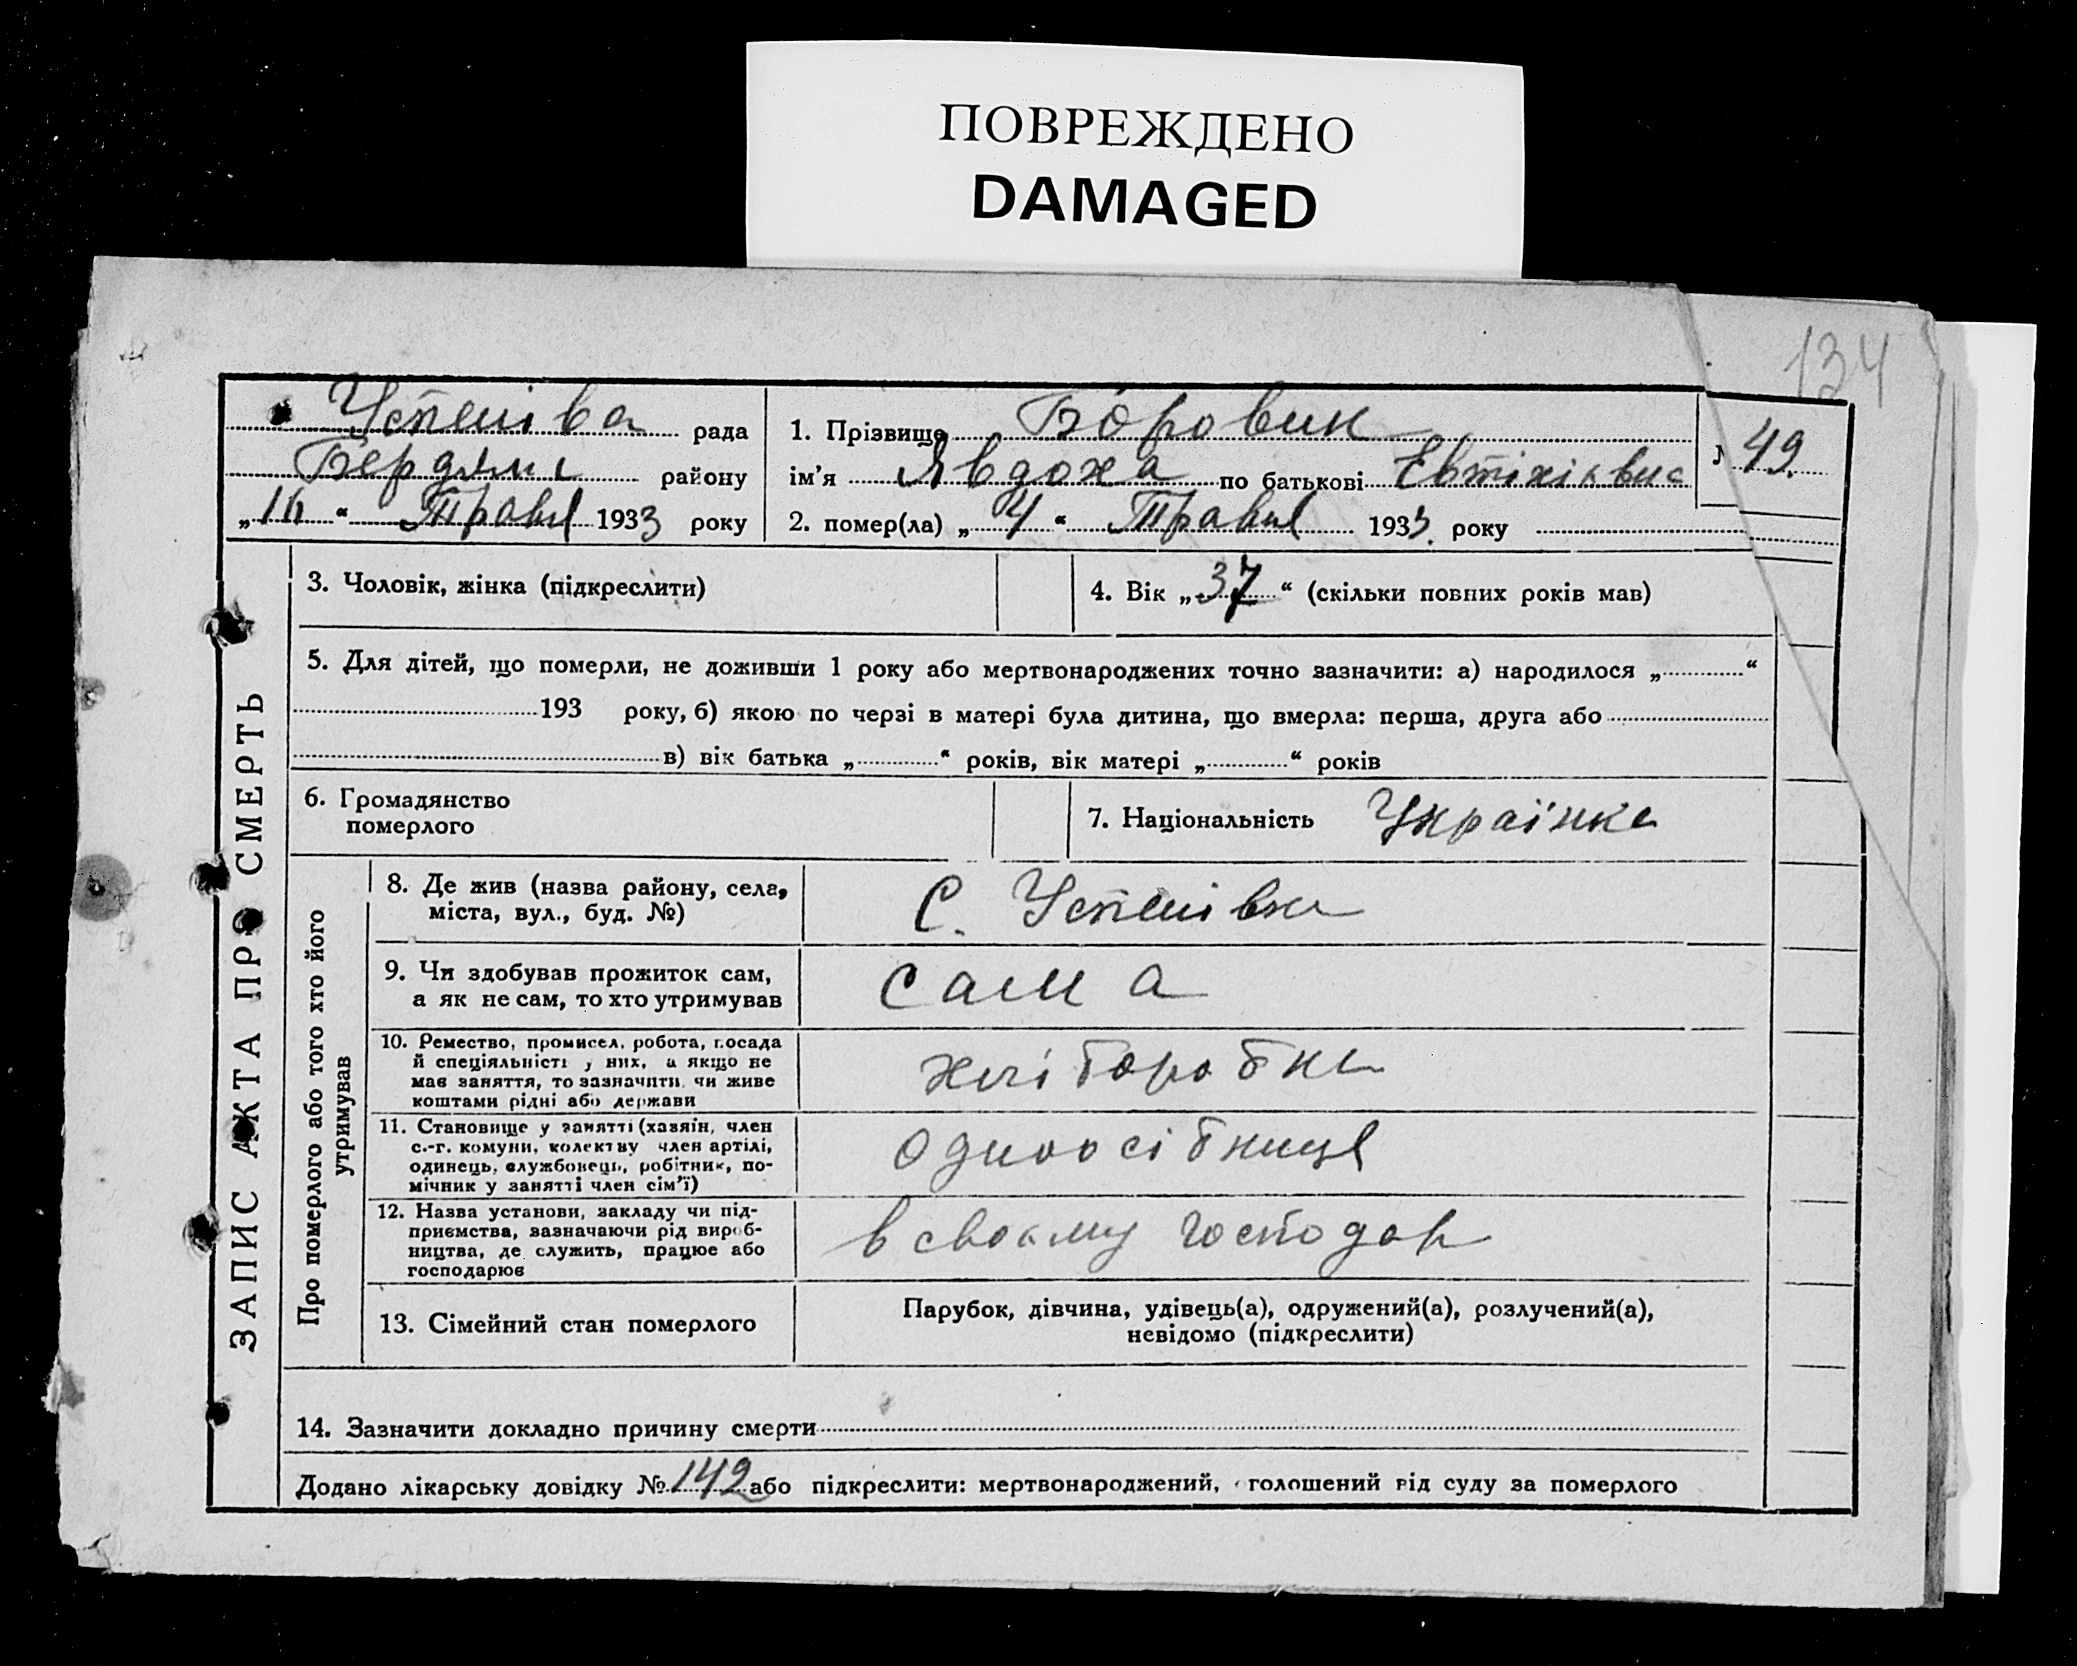 ПОВРЕЖДЕНО
DAMAGED
134
Успеніва рада
Бердянс району
„16“ Травня 1933 року
1. Прізвище Боровик
ім’я Явдоха по батькові
2. помер(ла) „14“ Травня 1933. року
49.
ЗАПИС АКТА ПРО СМЕРТЬ
3. Чоловік, жінка (підкреслити)
4. Вік „37“ (скільки повних років мав)
5. Для дітей, що померли, не доживши 1 року або мертвонароджених точно зазначити: а) народилося „ “
193 року, б) якою по черзі в матері була дитина, що вмерла: перша, друга або
в) вік батька „ “ років, вік матері „ “ років
6. Громадянство
померлого
7. Національність Українка
Про померлого або того хто його
утримував
8. Де жив (назва району, села,
міста, вул., буд. №)
С. Успенівка
9. Чи здобував прожиток сам,
а як не сам, то хто утримував
сама
10. Ремество, промисел, робота, посада
й спеціяльність у них, а якщо не
мав заняття, то зазначити чи живе
коштами рідні або держави
хліборобка
11. Становище у занятті (хазяїн, член
с.-г. комуни, колективу член артілі,
одинець, службовець, робітник, по-
мічник у занятті член сім’ї)
одноосібниця
12. Назва установи, закладу чи під-
приємства, зазначаючи рід вироб-
ництва, де служить, працює або
господарює
в своєму господар
13. Сімейний стан померлого
Парубок, дівчина, удівець(а), одружений(а), розлучений(а),
невідомо (підкреслити)
14. Зазначити докладно причину смерти
Додано лікарську довідку № 142 або підкреслити: мертвонароджений, голошений від суду за померлого